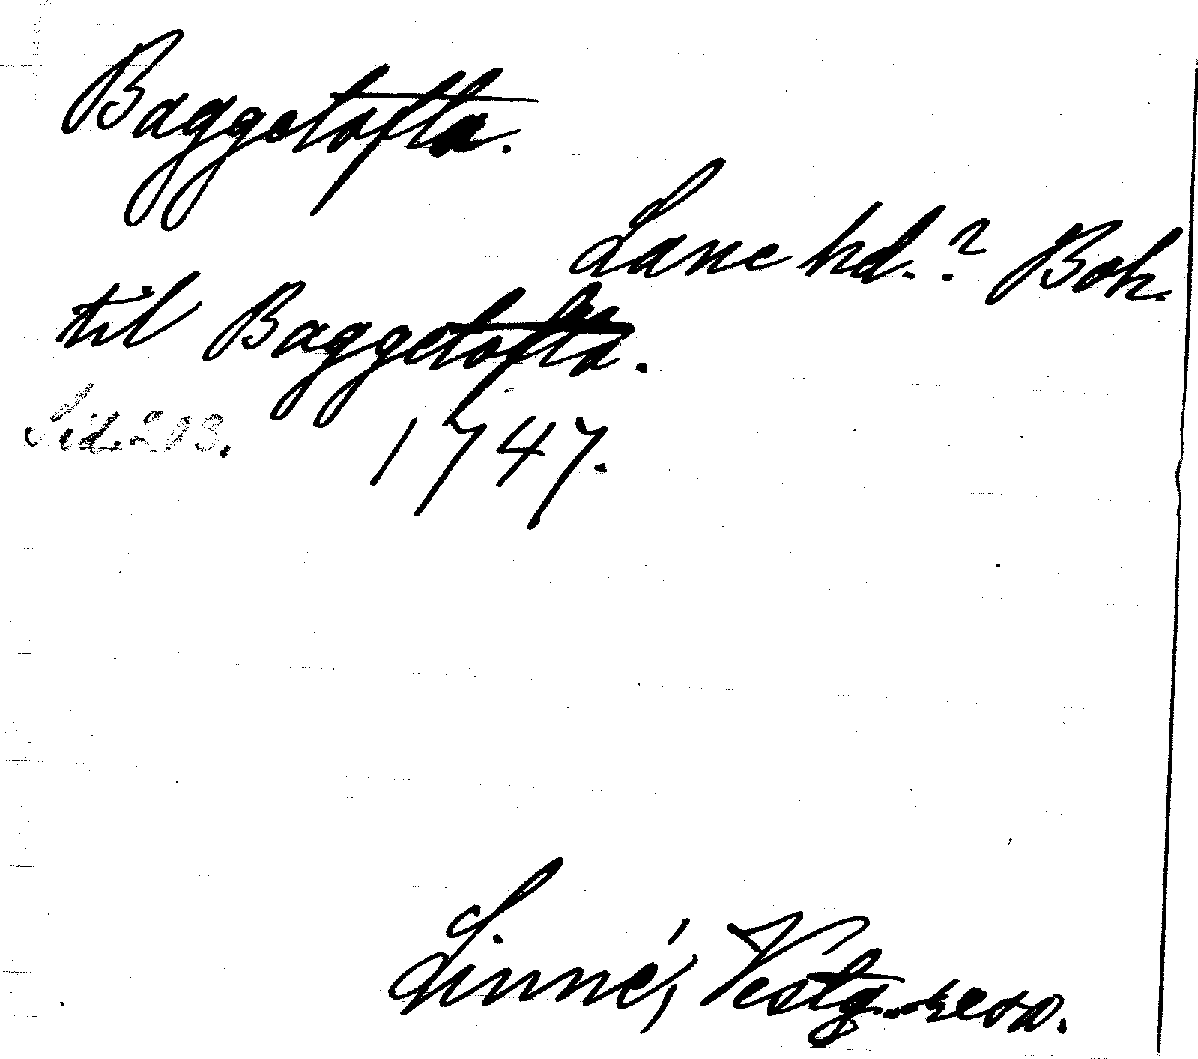 Baggetofta.
Lane hd.? Boh.
til Baggetofta.
Sid. 203. 1747.
Linné, Vestg. resa.